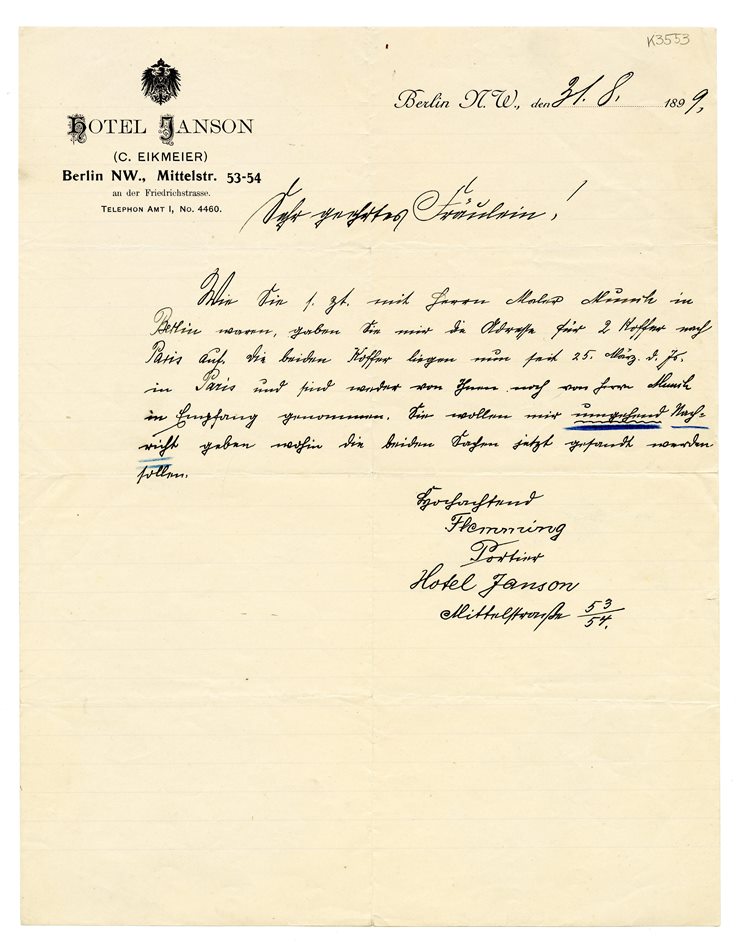 K3553
HOTEL JANSON
(C. EIKMEIER)
Berlin NW., Mittelstr. 53-54
an der Friedrichstrasse.
TELEPHON AMT I, No. 4460.
Berlin N.W., den 31. 8. 1899,
Sehr geehrtes Fräulein!
Wie Sie s. Zt. mit Herrn Maler Munch in
Berlin waren, gaben Sie mir die Adresse für 2 Koffer nach
Paris auf. Die beiden Koffer liegen nun seit 25. März d. Js.
in Paris und sind weder von Ihnen noch von Herrn Munch
in Empfang genommen. Sie wollen mir umgehend Nach=
richt geben wohin die beiden Sachen jetzt gesandt werden
sollen.
Hochachtend
Flemming
Portier
Hotel Janson
Mittelstraße 53/54.